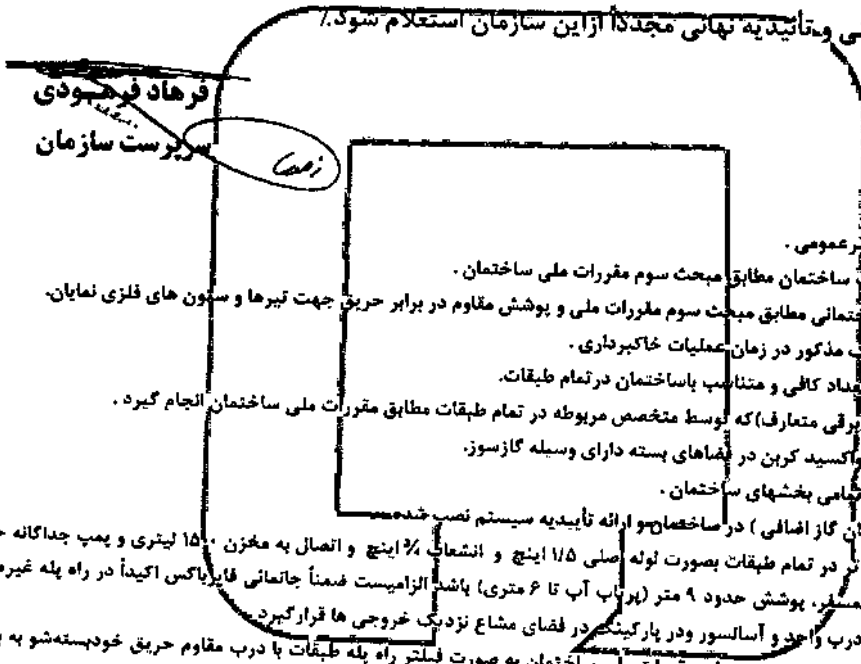 ی و تأئیدیه نهائی مجدداً ازاین سازمان استعلام شود./
فرهاد فرهودی
سرپرست سازمان
عمومی .
ساختمان مطابق مبحث سوم مقررات ملی ساختمان .
ختمانی مطابق مبحث سوم مقررات ملی و پوشش مقاوم در برابر حریق جهت تیرها و ستون های فلزی نمایان.
مذکور در زمان عملیات خاکبرداری .
عداد کافی و متناسب باساختمان درتمام طبقات.
برقی متعارف)که توسط متخصص مربوطه در تمام طبقات مطابق مقررات ملی ساختمان انجام گیرد .
واکسید کربن در فضاهای بسته دارای وسیله گازسوز.
مامی بخشهای ساختمان .
ان گاز اضافی ) در ساختمان و ارائه تأییدیه سیستم نصب شده
در تمام طبقات بصورت لوله اصلی ۱/۵ اینچ و انشعاب ¾ اینچ و اتصال به مخزن ۱۵۰۰ لیتری و پمپ جداگانه
پوشش حدود ۹ متر (پرتاب آب تا ۶ متری) باشد الزامیست ضمناً جانمائی فایرباکس اکیداً در راه پله غیرم
درب واحد و آسانسور ودر پارکینگ در فضای مشاع نزدیک خروجی ها قرارگیرد
ساختمان به صورت فیلتر راه پله طبقات با درب مقاوم حریق خودبسته‌شو به